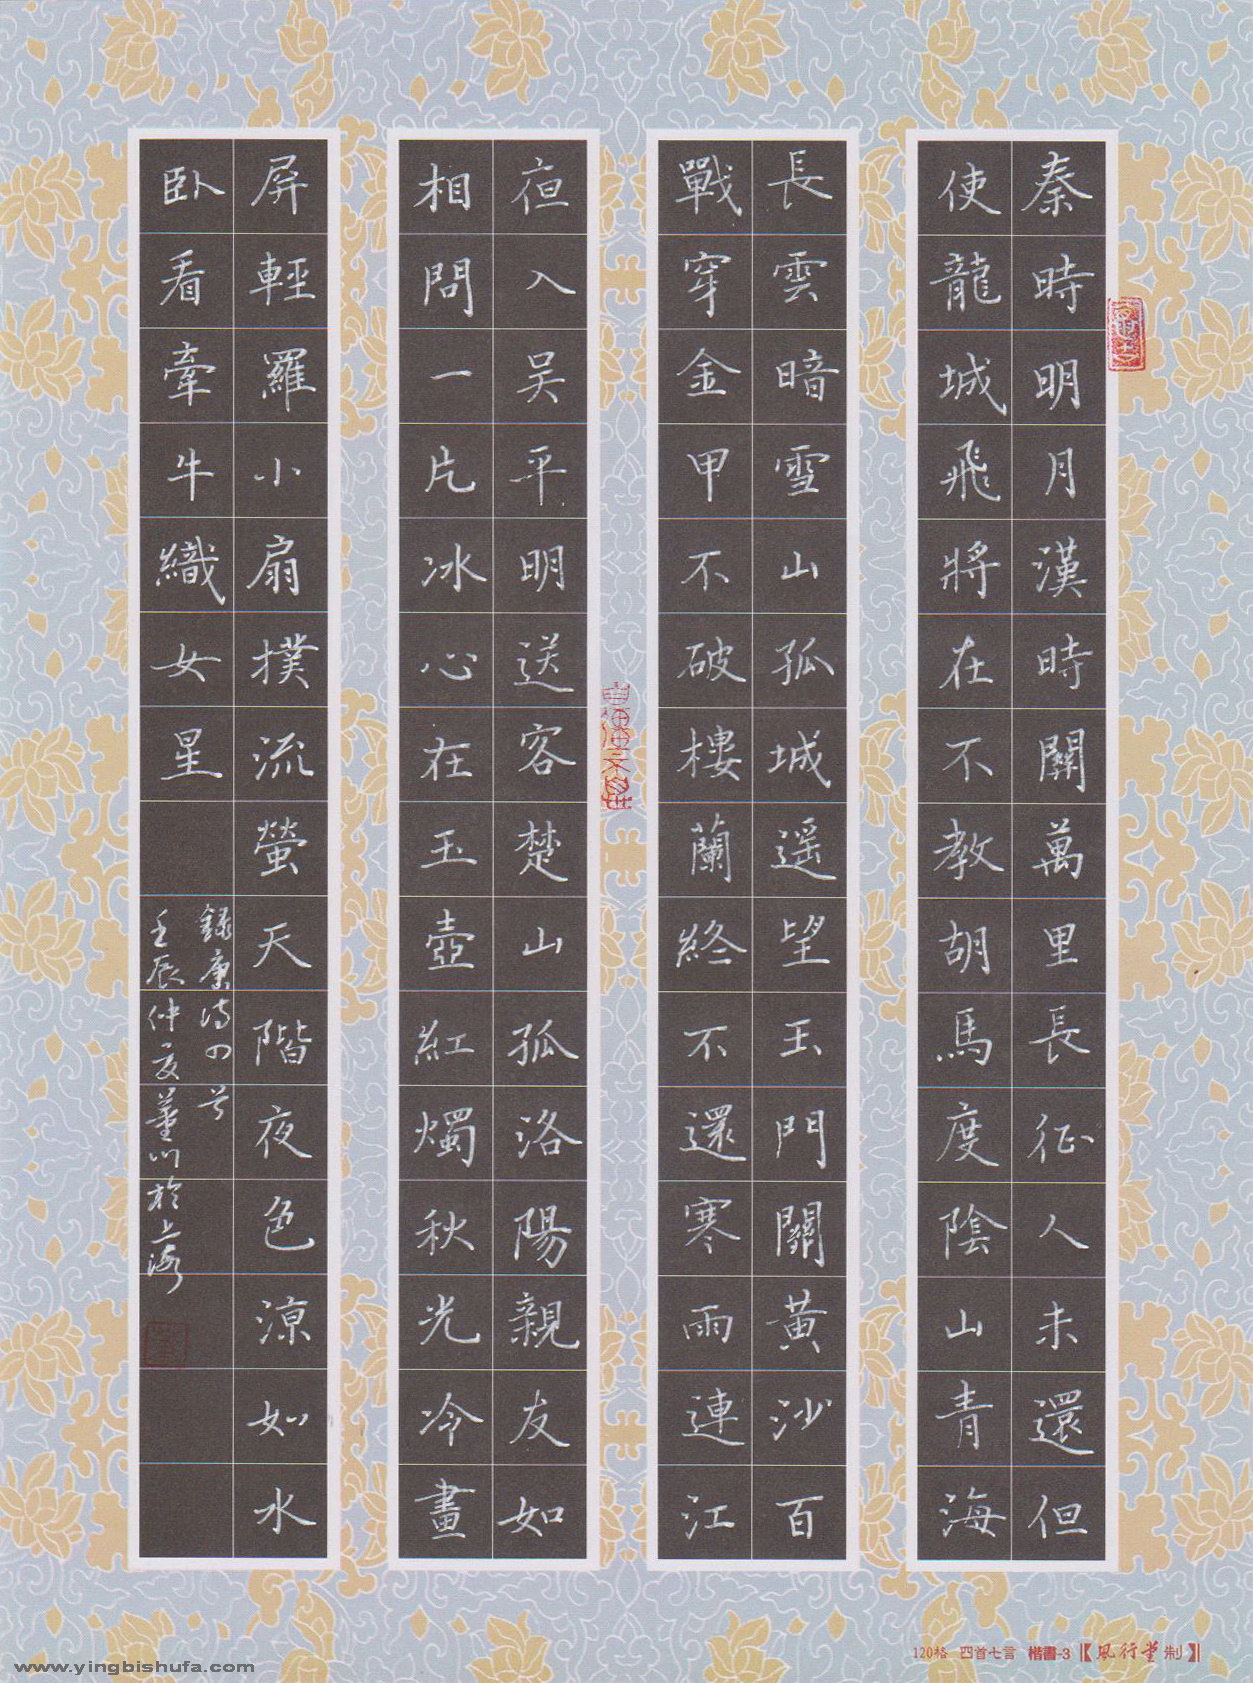 秦時明月漢時關萬里長征人未還但
使龍城飛將在不教胡馬度陰山青海
長雲暗雪山孤城遥望玉門關黃沙百
戰穿金甲不破樓蘭終不還寒雨連江
夜入吴平明送客楚山孤洛陽親友如
相問一片冰心在玉壺紅燭秋光冷畫
屏輕羅小扇撲流螢天階夜色涼如水
卧看牽牛織女星
錄唐詩四首
壬辰仲夏川於上海
120格 四首七言 楷書-3【風行堂制】
www.yingbishufa.com